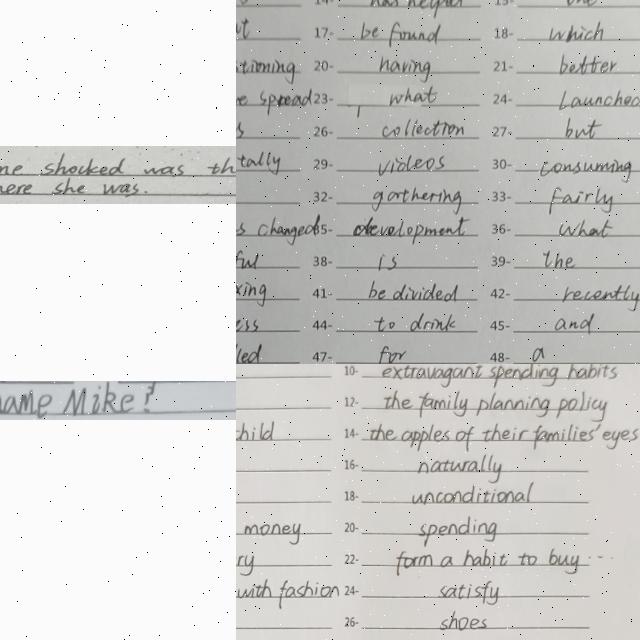 has helped
17- be found 18- which
tioning 20- having 21- better
e spread 23- what 24- Launched
s 26- collection 27- but
ne shocked was th
here she was.
tally 29- videos 30- consuming
32- gathering 33- fairly
s changed 35- development 36- what
ful 38- is 39- the
king 41- be divided 42- recently
ess 44- to drink 45- and
led 47- for 48- a
10- extravagant spending habits
ame Mike?
12- the family planning policy
hild 14- the apples of their families' eyes
16- naturally
18- unconditional
money 20- spending
ry 22- form a habit to buy ...
with fashion 24- satisfy
26- shoes